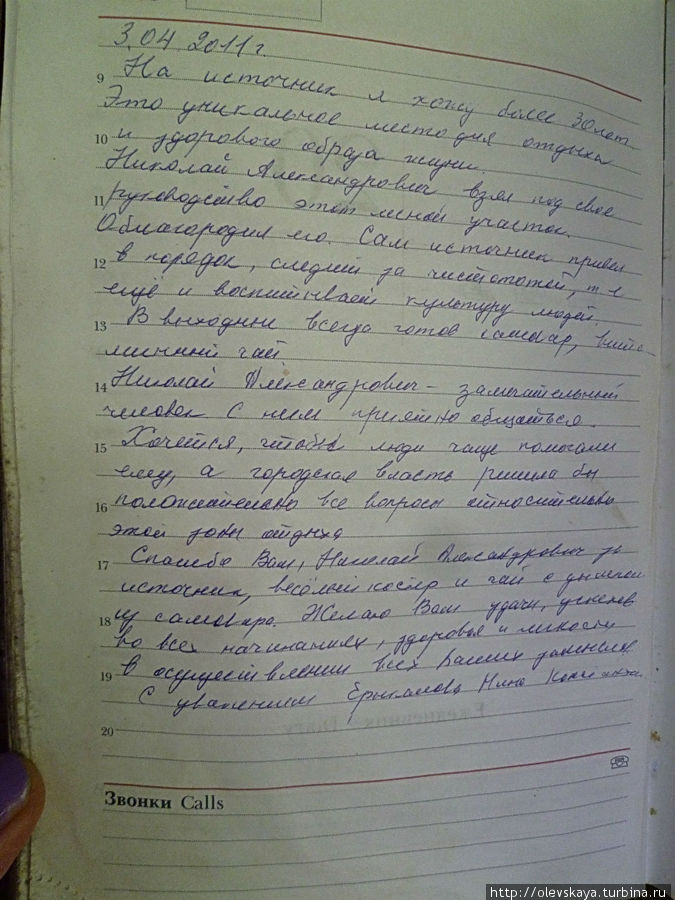 3.04 2011 г.
9 На источник я хожу более 30 лет.
Это уникальное место для отдыха
10 и здорового образа жизни.
Николай Александрович взял под свое
11 руководство этот лесной участок.
Облагородил его. Сам источник привел
12 в порядок, следит за чистотой,
ещё и воспитывает культуру людей.
13 В выходные всегда готов самовар,
чай.
14 Николай Александрович - замечательный
человек с ним приятно общаться.
15 Хочется, чтобы люди чаще помогали
ему, а городская власть решила бы
16 положительно все вопросы относительно
этой зоны отдыха
17 Спасибо Вам, Николай Александрович за
источник, весёлый костёр и чай с дымком
18 из самовара. Желаю Вам удачи, успехов
во всех начинаниях, здоровья и
19 в осуществлении всех Ваших
С уважением Нина
20
Звонки Calls
http://olevskaya.turbina.ru